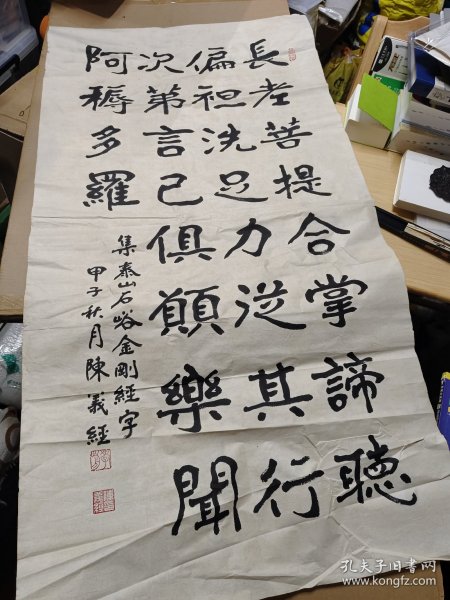 長老菩提合掌諦聽
偏袒洗足力從其行
次第言已俱願樂聞
阿耨多羅
集泰山石峪金剛經字
甲子秋月陳義經
孔夫子旧书网
www.kongfz.com